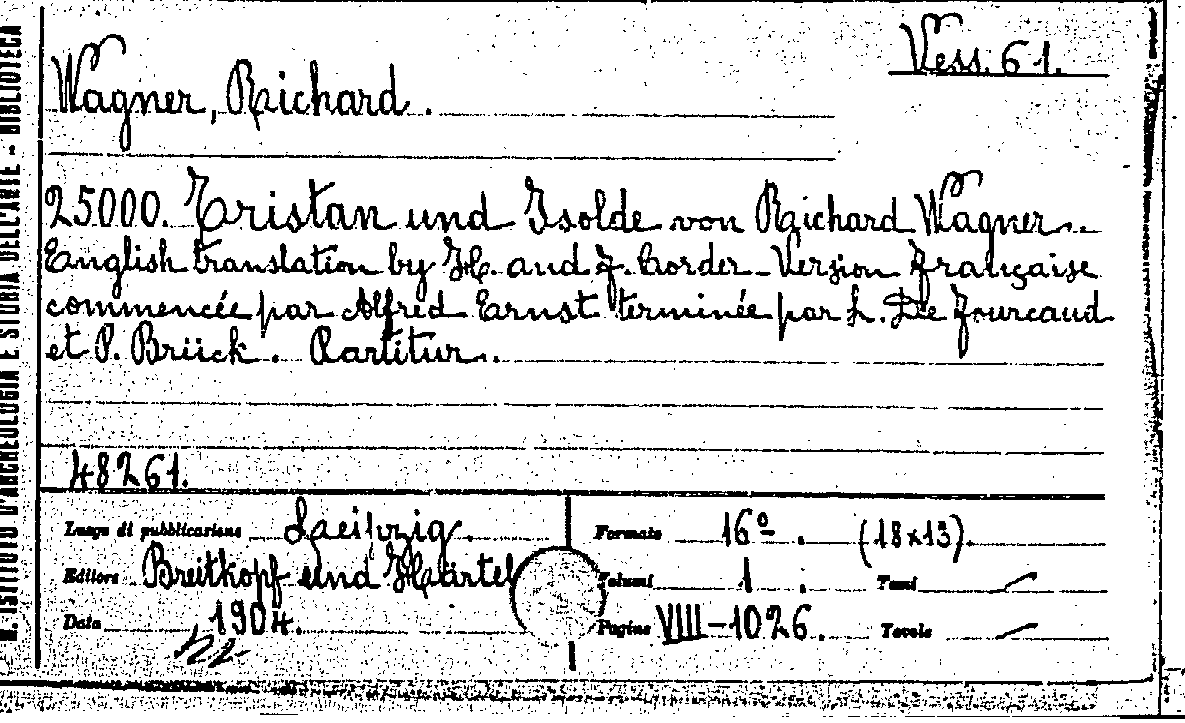 R. ISTITUTO D'ARCHEOLOGIA E STORIA DELL'ARTE - BIBLIOTECA
Vess. 61.
Wagner, Richard.
25000. Tristan und Isolde von Richard Wagner..
English translation by H. and F. Corder - Version française
commencée par Alfred Ernst terminée par L. De Fourcaud
et P. Brück. Partitur..
48261.
Luogo di pubblicazione Laeipzig. Formato 16º. (18x13).
Editore Breitkopf und Härtel Volumi 1. Tomi /
Data 1904. Pagine VIII-1026. Tavole /